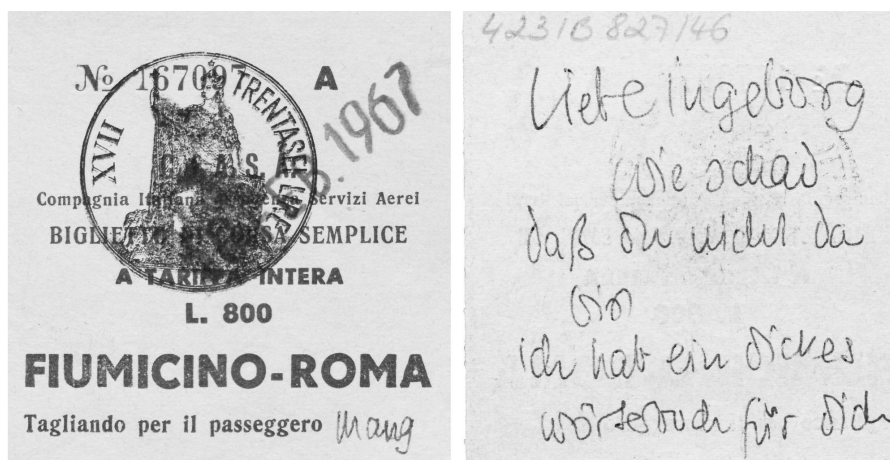 № 167097 A
XVII TRENTASEI LIRE
1967
C. I. A. S. A.
Compagnia Servizi Aerei
BIGLIETTO DI CORSA SEMPLICE
A TARIFFA INTERA
L. 800
FIUMICINO-ROMA
Tagliando per il passeggero
4231B 827/46
Liebe Ingeborg
wie schad
daß Du nicht da
bist
ich hab ein dickes
wörterbuch für dich